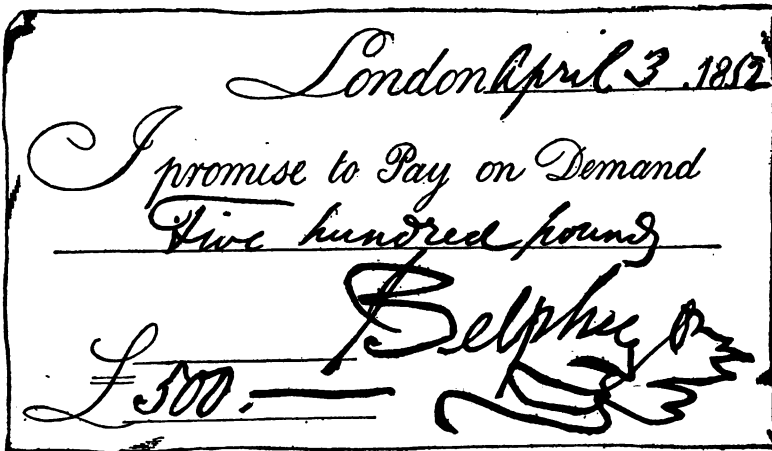 London April 3 .1852
I promise to Pay on Demand
Five hundred pounds
£500.